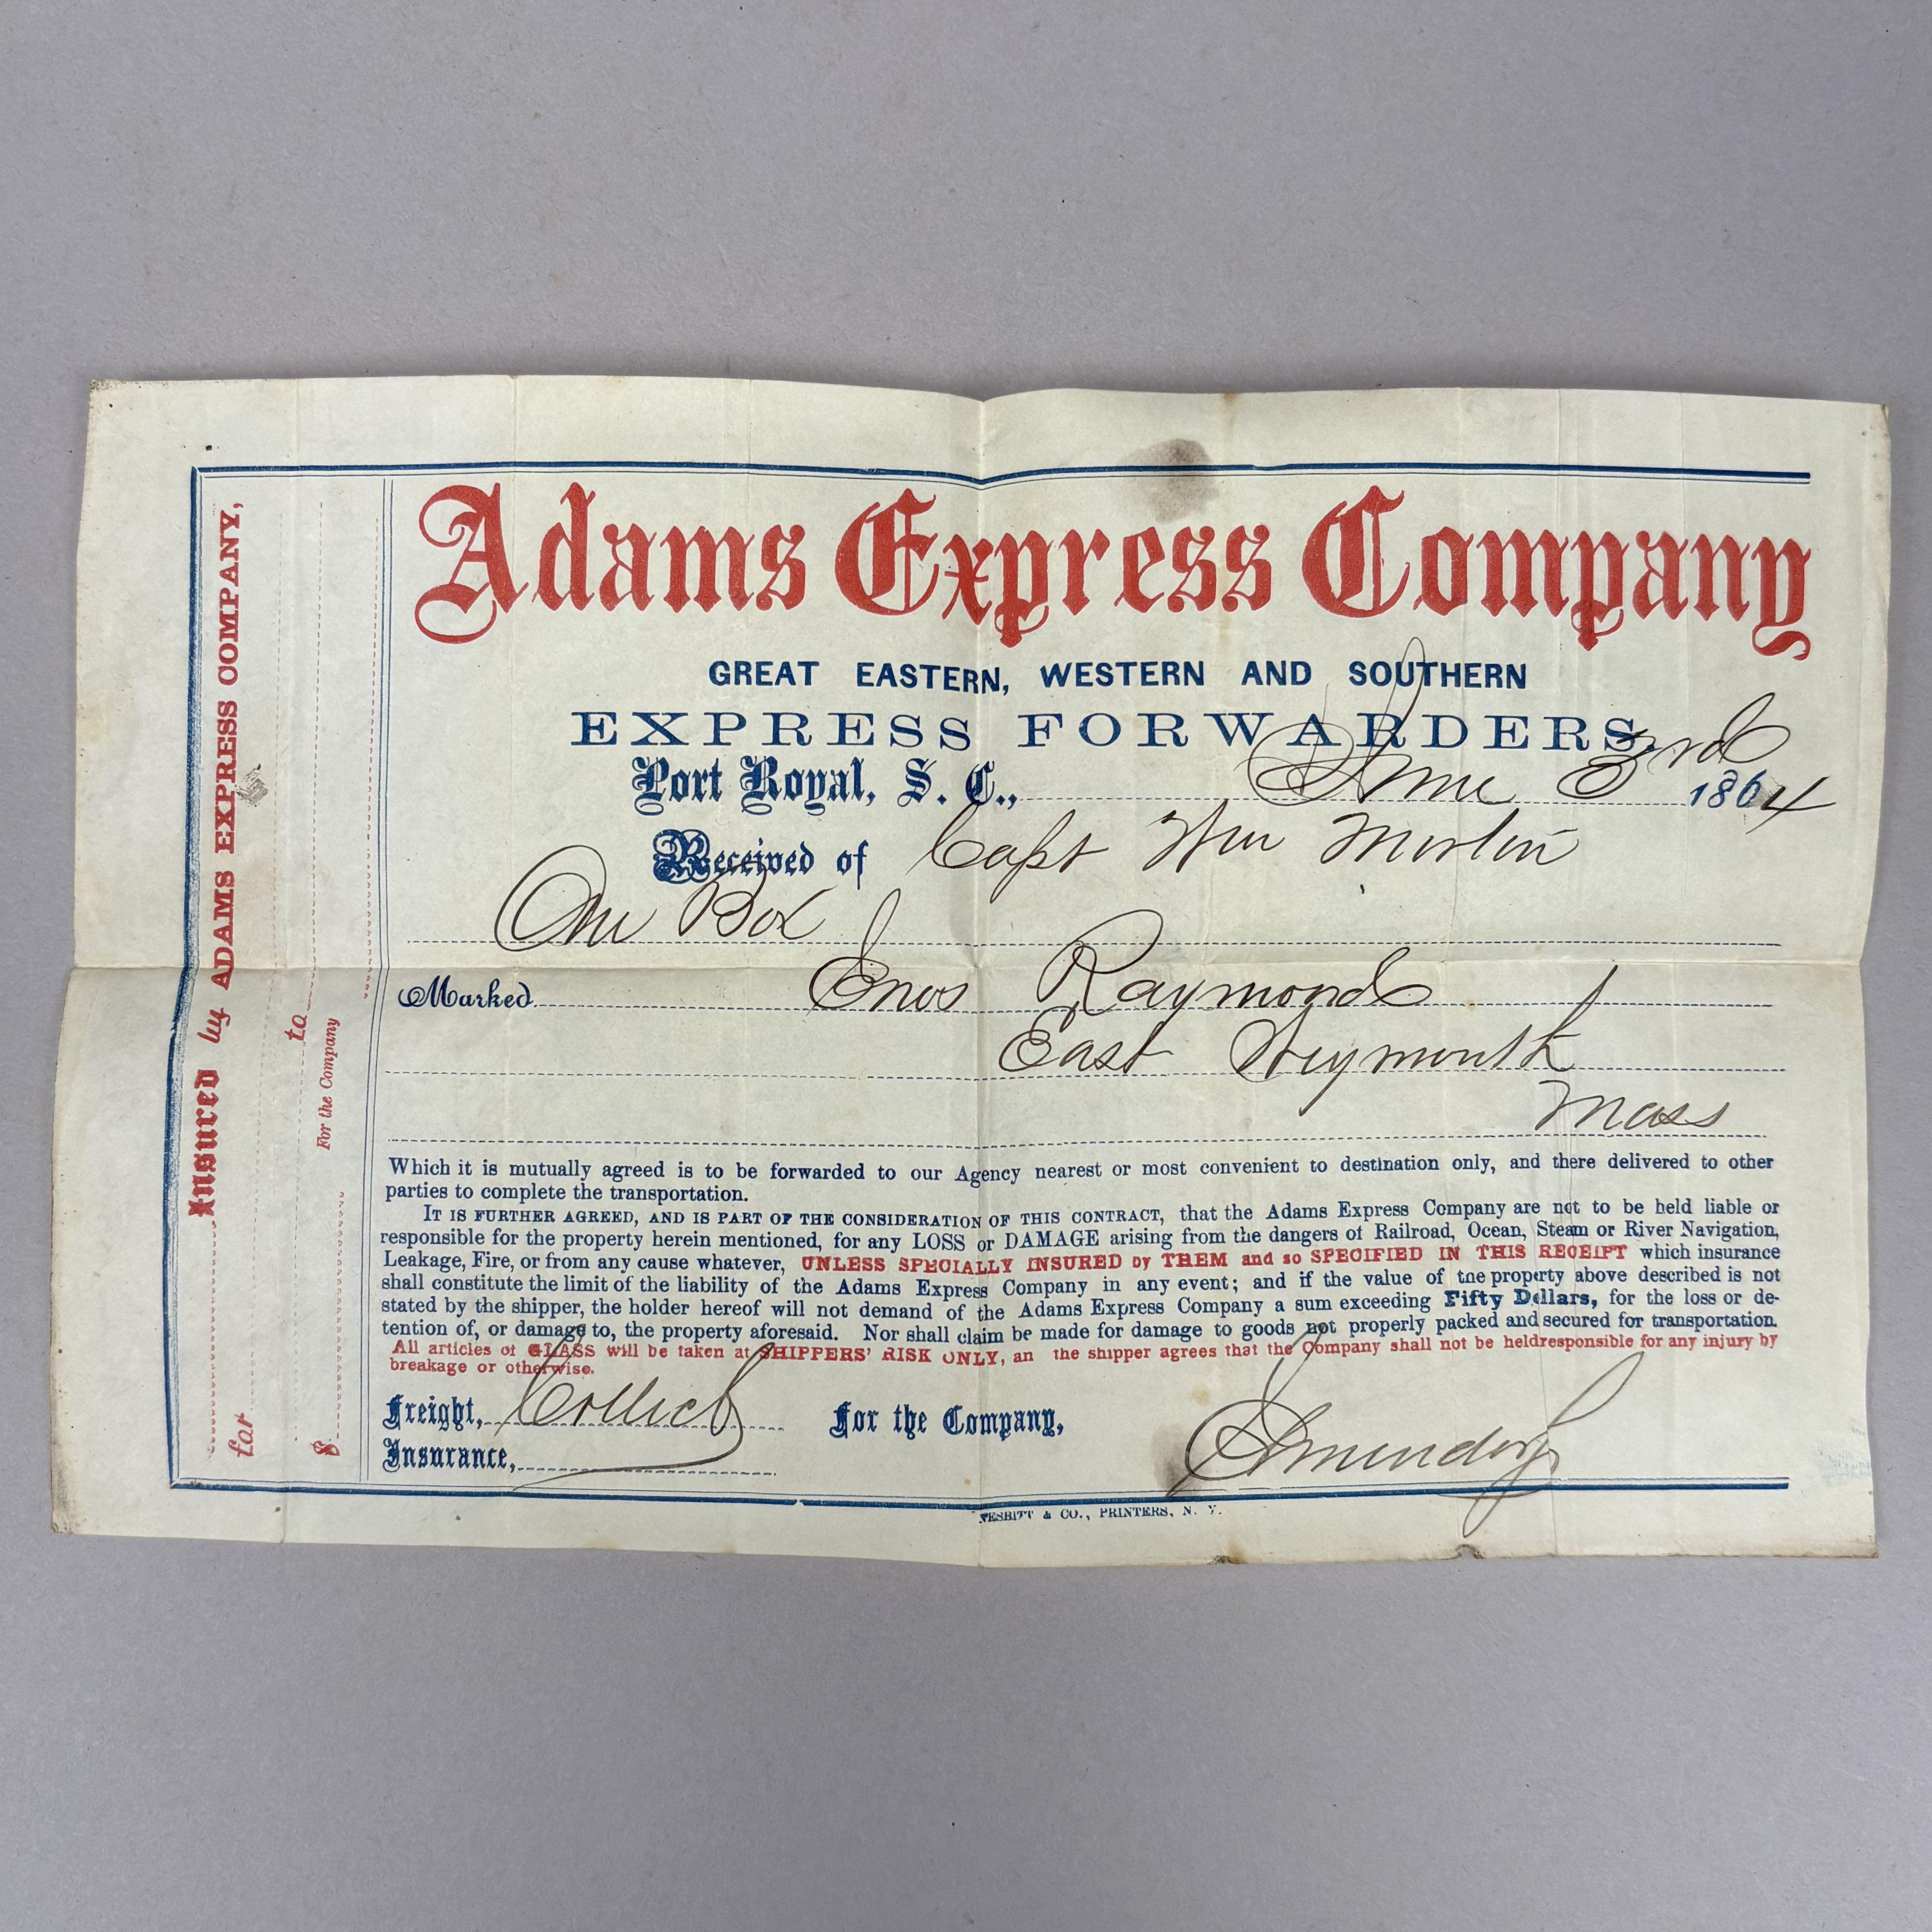 Adams Express Company
GREAT EASTERN, WESTERN AND SOUTHERN
EXPRESS FORWARDERS.
Port Royal, S. C., June 3rd 1864
Received of Capt Wm
One Box
Marked Enos Raymond
East Weymouth
Mass
Which it is mutually agreed is to be forwarded to our Agency nearest or most convenient to destination only, and there delivered to other
parties to complete the transportation.
IT IS FURTHER AGREED, AND IS PART OF THE CONSIDERATION OF THIS CONTRACT, that the Adams Express Company are not to be held liable or
responsible for the property herein mentioned, for any LOSS or DAMAGE arising from the dangers of Railroad, Ocean, Steam or River Navigation,
Leakage, Fire, or from any cause whatever, UNLESS SPECIALLY INSURED by THEM and so SPECIFIED IN THIS RECEIPT which insurance
shall constitute the limit of the liability of the Adams Express Company in any event; and if the value of the property above described is not
stated by the shipper, the holder hereof will not demand of the Adams Express Company a sum exceeding Fifty Dollars, for the loss or de-
tention of, or damage to, the property aforesaid. Nor shall claim be made for damage to goods not properly packed and secured for transportation.
All articles of GLASS will be taken at SHIPPERS' RISK ONLY, an the shipper agrees that the Company shall not be held responsible for any injury by
breakage or otherwise.
Freight, Collect For the Company,
Insurance,
NESBITT & CO., PRINTERS, N. Y.
Insured by ADAMS EXPRESS COMPANY,
for to
$ For the Company